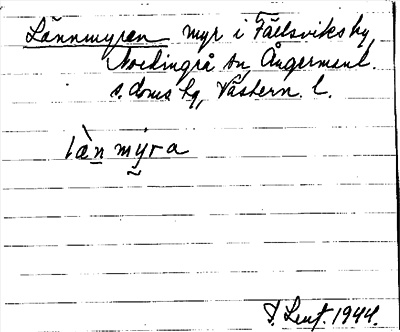 Lännmyren myr i Fällsviks by,
Nordingrå sn, Ångermanl.
s. doms hg, Västern. l.
lä̀n mýra
1944.